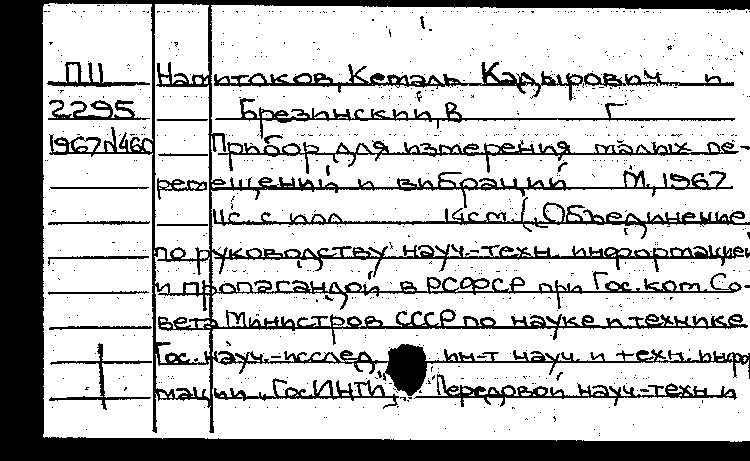 1.
П11 Натитоков, Кемаль Кадырович и
2295 Брезинский, В Г
1967/460 Прибор для измерения малых пе-
ремещений и вибраций М., 1967
11с. с илл 14см. (Объединение
по руководству науч.-техн. информацией
и пропагандой в РСФСР при Гос. ком. Со-
вета Министров СССР по науке и технике
Гос. науч.-исслед ин-т науч. и техн. инфор
мации „ГосИНТИ„ Передовой науч.-техн и